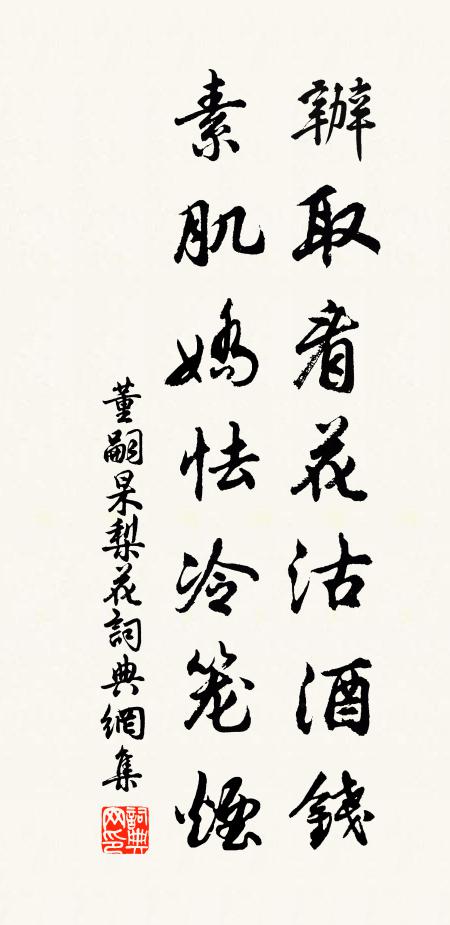 辦取看花沽酒錢
素肌嬌怯冷笼煙
董嗣杲梨花詞典網集
詞典网印